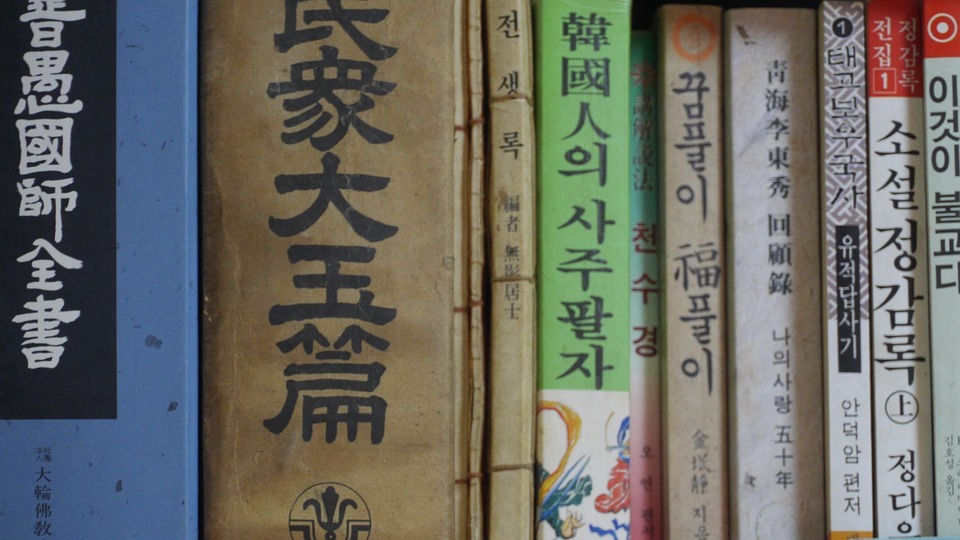 普愚國師全書
大輪佛敎
民衆大玉篇
전생록
編者 無影居士
韓國人의 사주팔자
천수경
꿈풀이 福풀이
지음
靑海李東秀 回顧錄
나의사랑 五十年
1
태고보우국사
유적답사기
안덕암 편저
정감록
전집 1
소설 정감록 上
이것이 불교다